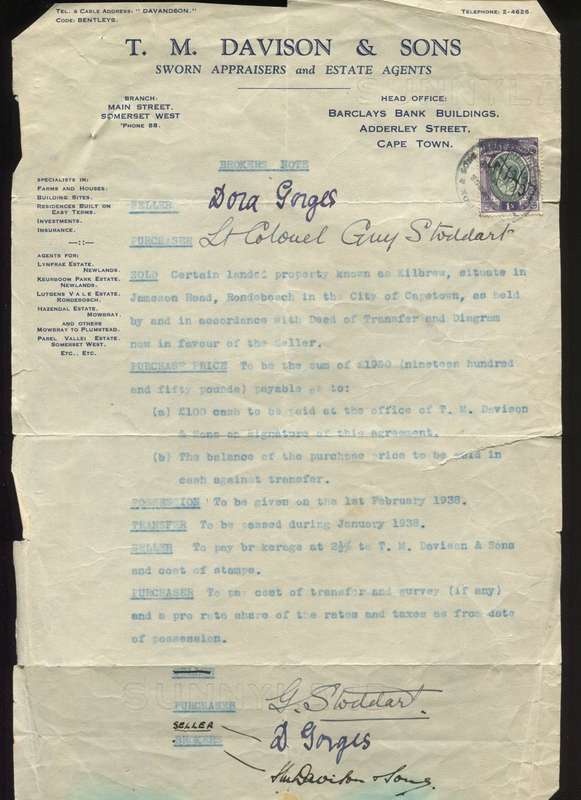 TEL. & CABLE ADDRESS: "DAVANDSON."
CODE: BENTLEYS.
TELEPHONE: 2-4626.
T. M. DAVISON & SONS
SWORN APPRAISERS and ESTATE AGENTS
BRANCH:
MAIN STREET,
SOMERSET WEST
'PHONE 88.
HEAD OFFICE:
BARCLAYS BANK BUILDINGS,
ADDERLEY STREET,
CAPE TOWN.
SPECIALISTS IN:
FARMS AND HOUSES:
BUILDING SITES.
RESIDENCES BUILT ON
EASY TERMS.
INVESTMENTS.
INSURANCE.
AGENTS FOR:
LYNFRAE ESTATE.
NEWLANDS.
KEURBOOM PARK ESTATE.
NEWLANDS.
LUTGENS VALE ESTATE.
RONDEBOSCH.
HAZENDAL ESTATE.
MOWBRAY.
AND OTHERS
MOWBRAY TO PLUMSTEAD.
PAREL VALLEI ESTATE.
SOMERSET WEST.
ETC., ETC.
BROKERS NOTE
SELLER Dora Gorges
PURCHASER Lt Colonel Guy Stoddart
SOLD Certain landed property known as Kilbrew, situate in
Jameson Road, Rondebosch in the City of Capetown, as held
by and in accordance with Deed of Transfer and Diagram
now in favour of the Seller.
PURCHASE PRICE To be the sum of £1950 (nineteen hundred
and fifty pounds) payable as to:
(a) £100 cash to be paid at the office of T. M. Davison
& Sons on signature of this agreement.
(b) The balance of the purchase price to be paid in
cash against transfer.
POSSESSION To be given on the 1st February 1938.
TRANSFER To be passed during January 1938.
SELLER To pay brokerage at 2½% to T. M. Davison & Sons
and cost of stamps.
PURCHASER To pay cost of transfer and survey (if any)
and a pro rata share of the rates and taxes as from date
of possession.
PURCHASER G. Stoddart.
SELLER D Gorges
BROKERS TM Davison & Sons.